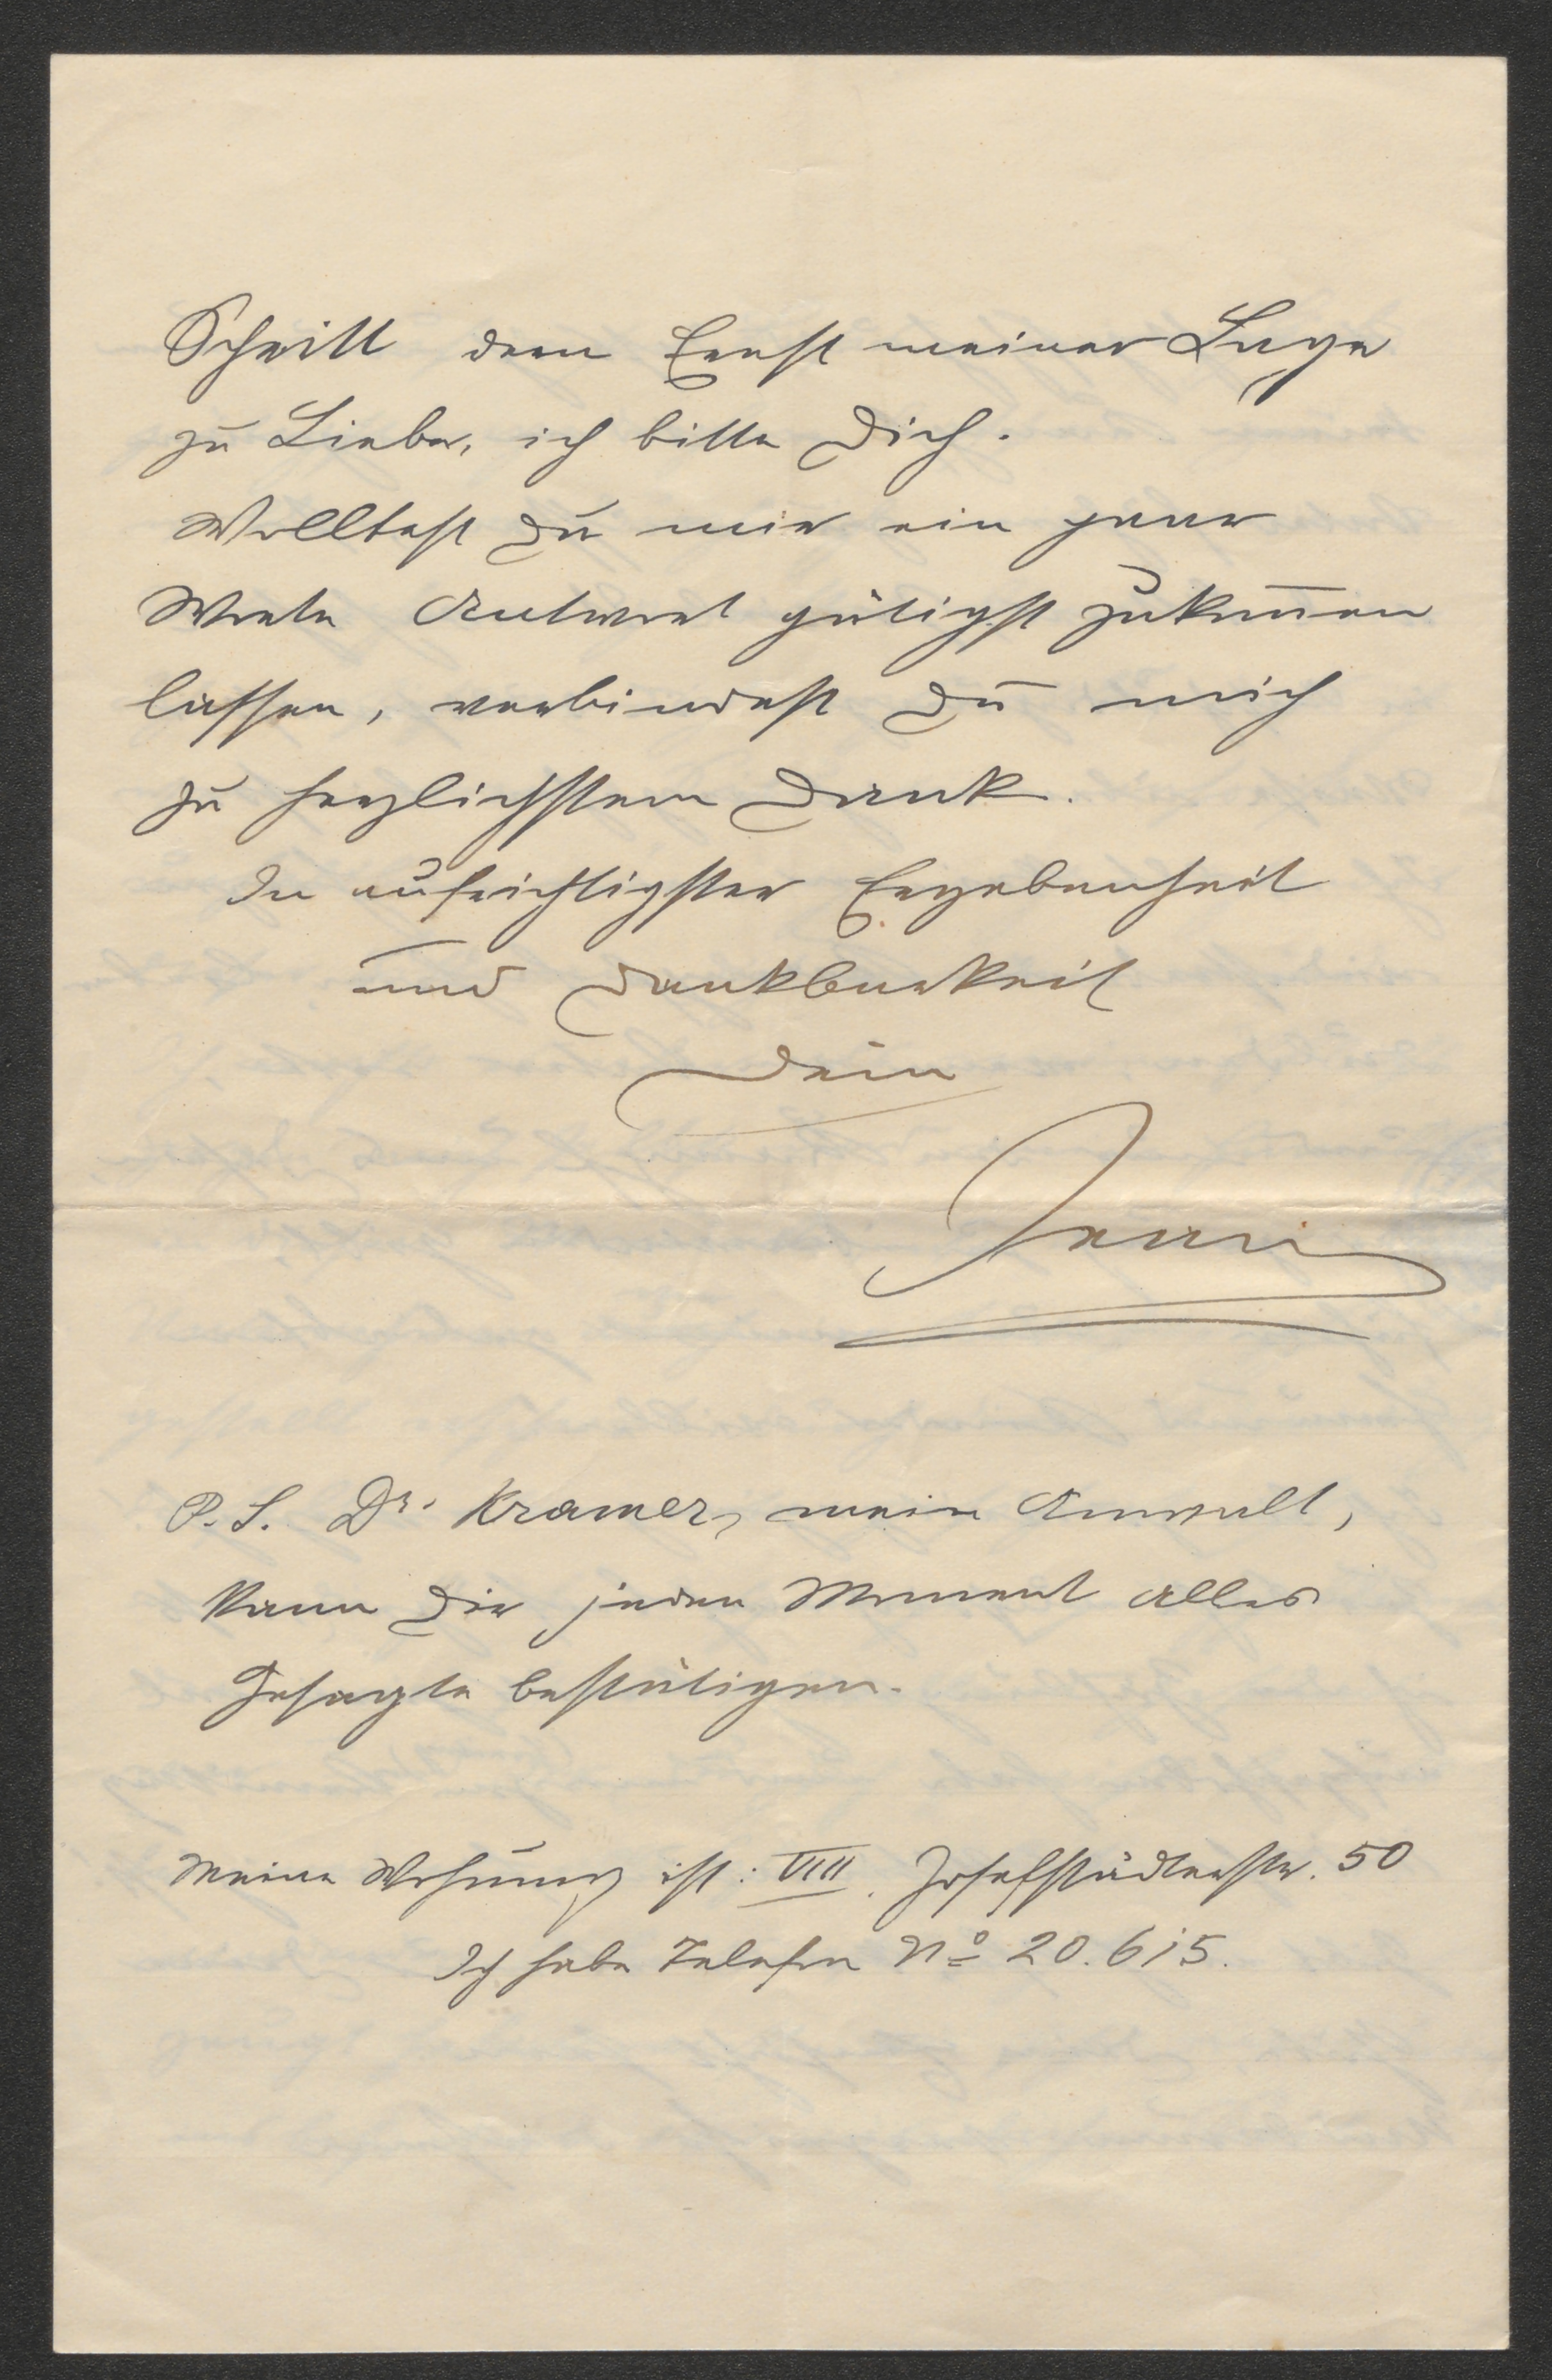 Schritt dem Ernst meiner Lage
zu Liebe, ich bitte Dich.
Wolltest Du mir ein paar
Worte Antwort gütigst zukom̄en
lassen, verbindest Du mich
zu herzlichstem Dank.
In aufrichtigster Ergebenheit
und Dankbarkeit
Dein
P.S. Dr. Kramer, mein Anwalt,
kann Dir jeden Moment alles
Gesagte bestätigen.
Meine Wohnung ist: VIII. Josefstädterstr. 50
Ich habe Telefon No 20.615.